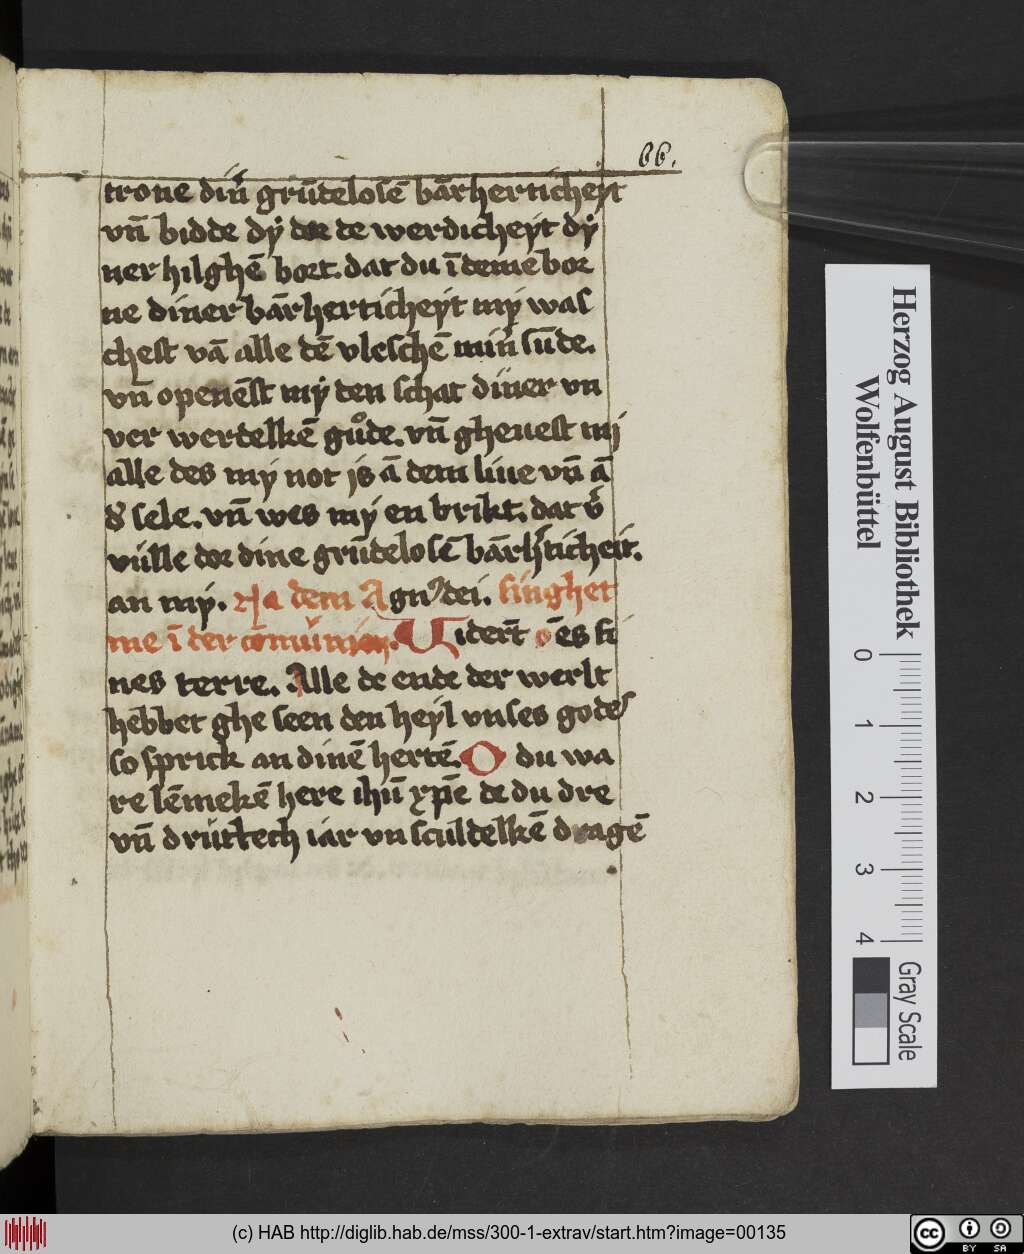 66.
trone din̄ grūdelosē bārherticheyt
vn̄ bidde dÿ dor de werdicheyt dÿ
ner hilghē bort. dat du ī deme bor
ne diner bārherticheyt mÿ was
chest vā alle dē vlesschē min̄ sūde.
vn̄ openēst mÿ den schat diner vn
ver werdelkē gůde. vn̄ gheuest mi
alle des mÿ not is ā dem liue vn̄ ā
d᷑ sele. vn̄ wes mÿ en brikt. dat v᷑
vülle dor dine grūdelosē bārh᷑ticheit.
an mÿ. Na dem Agnꝰ dei. singhet
me ī der cōmuniē. Uidert̄ oēs fi
nes terre. Alle de ende der werlt
hebbet ghe seen den heyl vnses godes
so sprick an dinē hertē. O du wa
re lēmekē here ihū xp̄e de du dre
vn̄ drüttech iar vnsculdelkē dragē
Herzog August Bibliothek
Wolfenbüttel
0 1 2 3 4
Gray Scale
(c) HAB http://diglib.hab.de/mss/300-1-extrav/start.htm?image=00135
cc BY SA